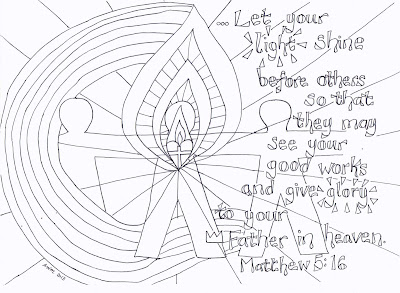 ... Let your
light shine
before others
so that
they may
see your
good works
and give glory
to your
Father in heaven.
Matthew 5:16